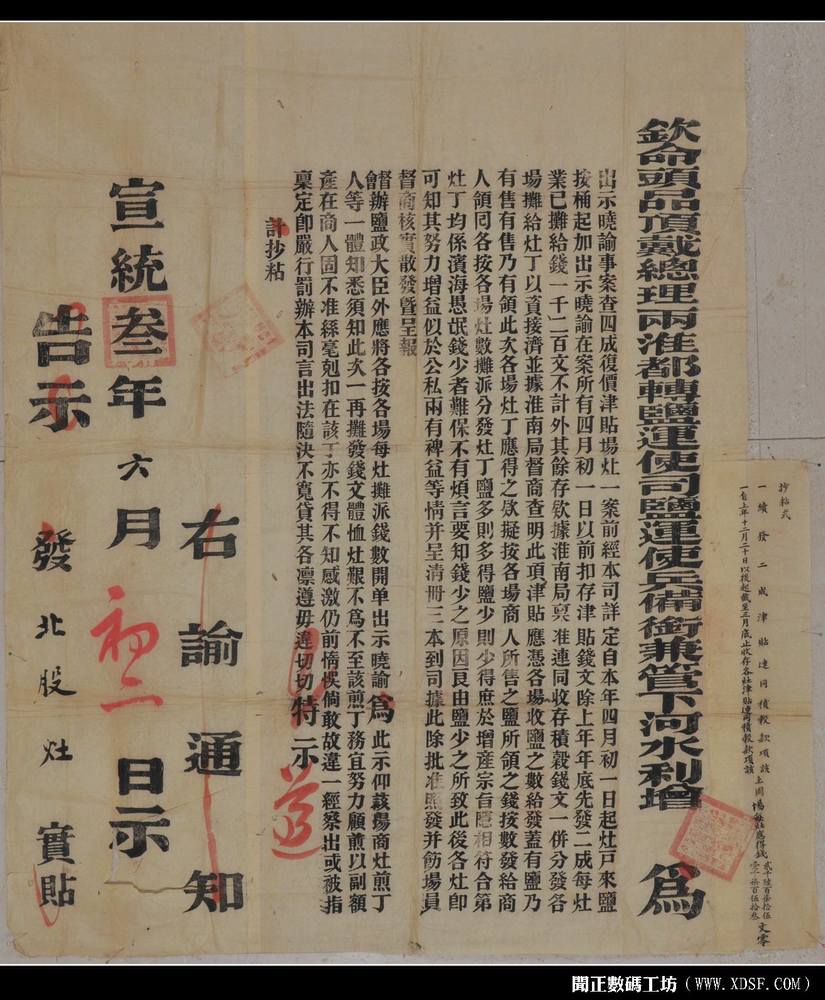 欽命頭品頂戴總理兩淮都轉鹽運使司鹽運使兵備銜兼管下河水利增 為
出示曉諭事案查四成復價津貼場灶一案前經本司詳定自本年四月初一日起灶戸來鹽
按桶起加出示曉諭在案所有四月初一日以前扣存津貼錢文除上年年底先發二成每灶
業已攤給錢一千二百文不計外其餘存欵據淮南局稟准連同收存積穀錢文一併分發各
場攤給灶丁以資接濟並據淮南局督商查明此項津貼應憑各場收鹽之數給發蓋有鹽乃
有售有售乃有領此次各場灶丁應得之欵擬按各場商人所售之鹽所領之錢按數發給商
人領囘各按各場灶數攤派分發灶丁鹽多則多得鹽少則少得庶於增產宗旨隱相符合第
灶丁均係濱海愚氓錢少者難保不有煩言要知錢少之原因良由鹽少之所致此後各灶卽
可知其努力增益似於公私兩有裨益等情并呈清冊三本到司據此除批准照發并飭場員
督商核實散發暨呈報
督辦鹽政大臣外應將各按各場每灶攤派錢數開单出示曉諭為此示仰該場商灶煎丁
人等一體知悉須知此次一再攤發錢文體恤灶艱不為不至該煎丁務宜努力顧煎以副額
產在商人固不准絲毫剋扣在該丁亦不得不知感激仍前惰悞倘敢故違一經察出或被指
稟定卽嚴行罰辦本司言出法隨決不寬貸其各凜遵毋違切切特示
計抄粘
右諭通知
宣統叁年六月初二日示
告示
發北股灶 實貼
抄粘式
一續發二成津貼連同積穀款項該
文零
聞正數碼工坊（WWW.XDSF.COM）